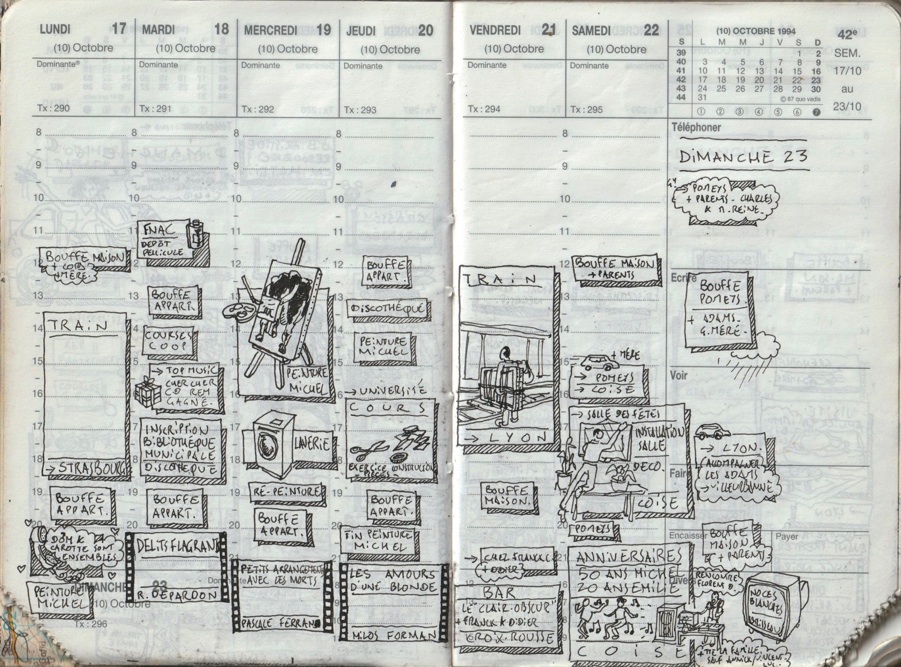 LUNDI 17
(10) Octobre
Dominante®
Tx : 290
8
9
10
11
12
BOUFFE MAISON
+ MÈRE.
13
14
TRAIN
15
16
17
18
→ STRASBOURG
19
BOUFFE
APPART.
20
DOM &
CAROTTE SONT
ENSEMBLES
PEINTURE
MICHEL
DIMANCHE 23
(10) Octobre
Tx : 296
MARDI 18
(10) Octobre
Dominante
Tx : 291
8
9
10
11
FNAC
DEPÔT
PELLICULE
BOUFFE
APPART.
COURSES
COOP
→ TOP MUSIC
CHERCHER
CD REM
GAGNÉ.
INSCRIPTION
BIBLIOTHÈQUE
MUNICIPALE
DISCOTHÈQUE
BOUFFE
APPART.
DELITS FLAGRAN
R. DEPARDON
MERCREDI 19
(10) Octobre
Dominante
Tx : 292
8
9
10
11
12
13
PEINTURE
MICHEL
LAVERIE
RE-PEINTURE
BOUFFE
APPART.
PETITS ARRANGEMENTS
AVEC LES MORTS
PASCALE FERRAN
JEUDI 20
(10) Octobre
Dominante
Tx : 293
8
9
10
11
12
BOUFFE
APPART.
DISCOTHÈQUE
PEINTURE
MICHEL
→ UNIVERSITÉ
COURS
EXERCICE CONSTRUCTION
PIÈGES
BOUFFE
APPART.
FIN PEINTURE
MICHEL
LES AMOURS
D'UNE BLONDE
MILOS FORMAN
VENDREDI 21
(10) Octobre
Dominante
Tx : 294
TRAIN
→ LYON
BOUFFE
MAISON.
→ CHEZ FRANCK
+ DIDIER
BAR
LE "CLAIR-OBSCUR"
+ FRANCK & DIDIER
CROIX-ROUSSE
SAMEDI 22
(10) Octobre
Dominante
Tx : 295
8
9
10
11
12
BOUFFE MAISON
+ PARENTS
+ MÈRE
→ POMEYS
→ COISE
→ SALLE DES FÊTES
INSTALLATION
SALLE
DÉCO.
COISE
POMEYS
ANNIVERSAIRES
50 ANS MICHEL
20 ANS EMILIE
COISE
(10) OCTOBRE 1994
S L M M J V S D
39 1 2
40 3 4 5 6 7 8 9
41 10 11 12 13 14 15 16
42 17 18 19 20 21 22 23
43 24 25 26 27 28 29 30
44 31
© 87 quo vadis
42e
SEM.
17/10
au
23/10
Téléphoner
DIMANCHE 23
→ POMEYS
+ PARENTS - CHARLES
& M. REINE.
Ecrire
BOUFFE
POMEYS.
+ ADAMS
G. MÈRE.
Voir
→ LYON.
(ACCOMPAGNER
LES ADAMS
→ VILLEURBANNE
Faire
Encaisser
Payer
BOUFFE
MAISON
+ PARENTS
Divers
RENCONTRE
FLOREM D.
NOCES
BLANCHES
+ TTE LA FAMILLE
SAUF AMILIE/VINCENT